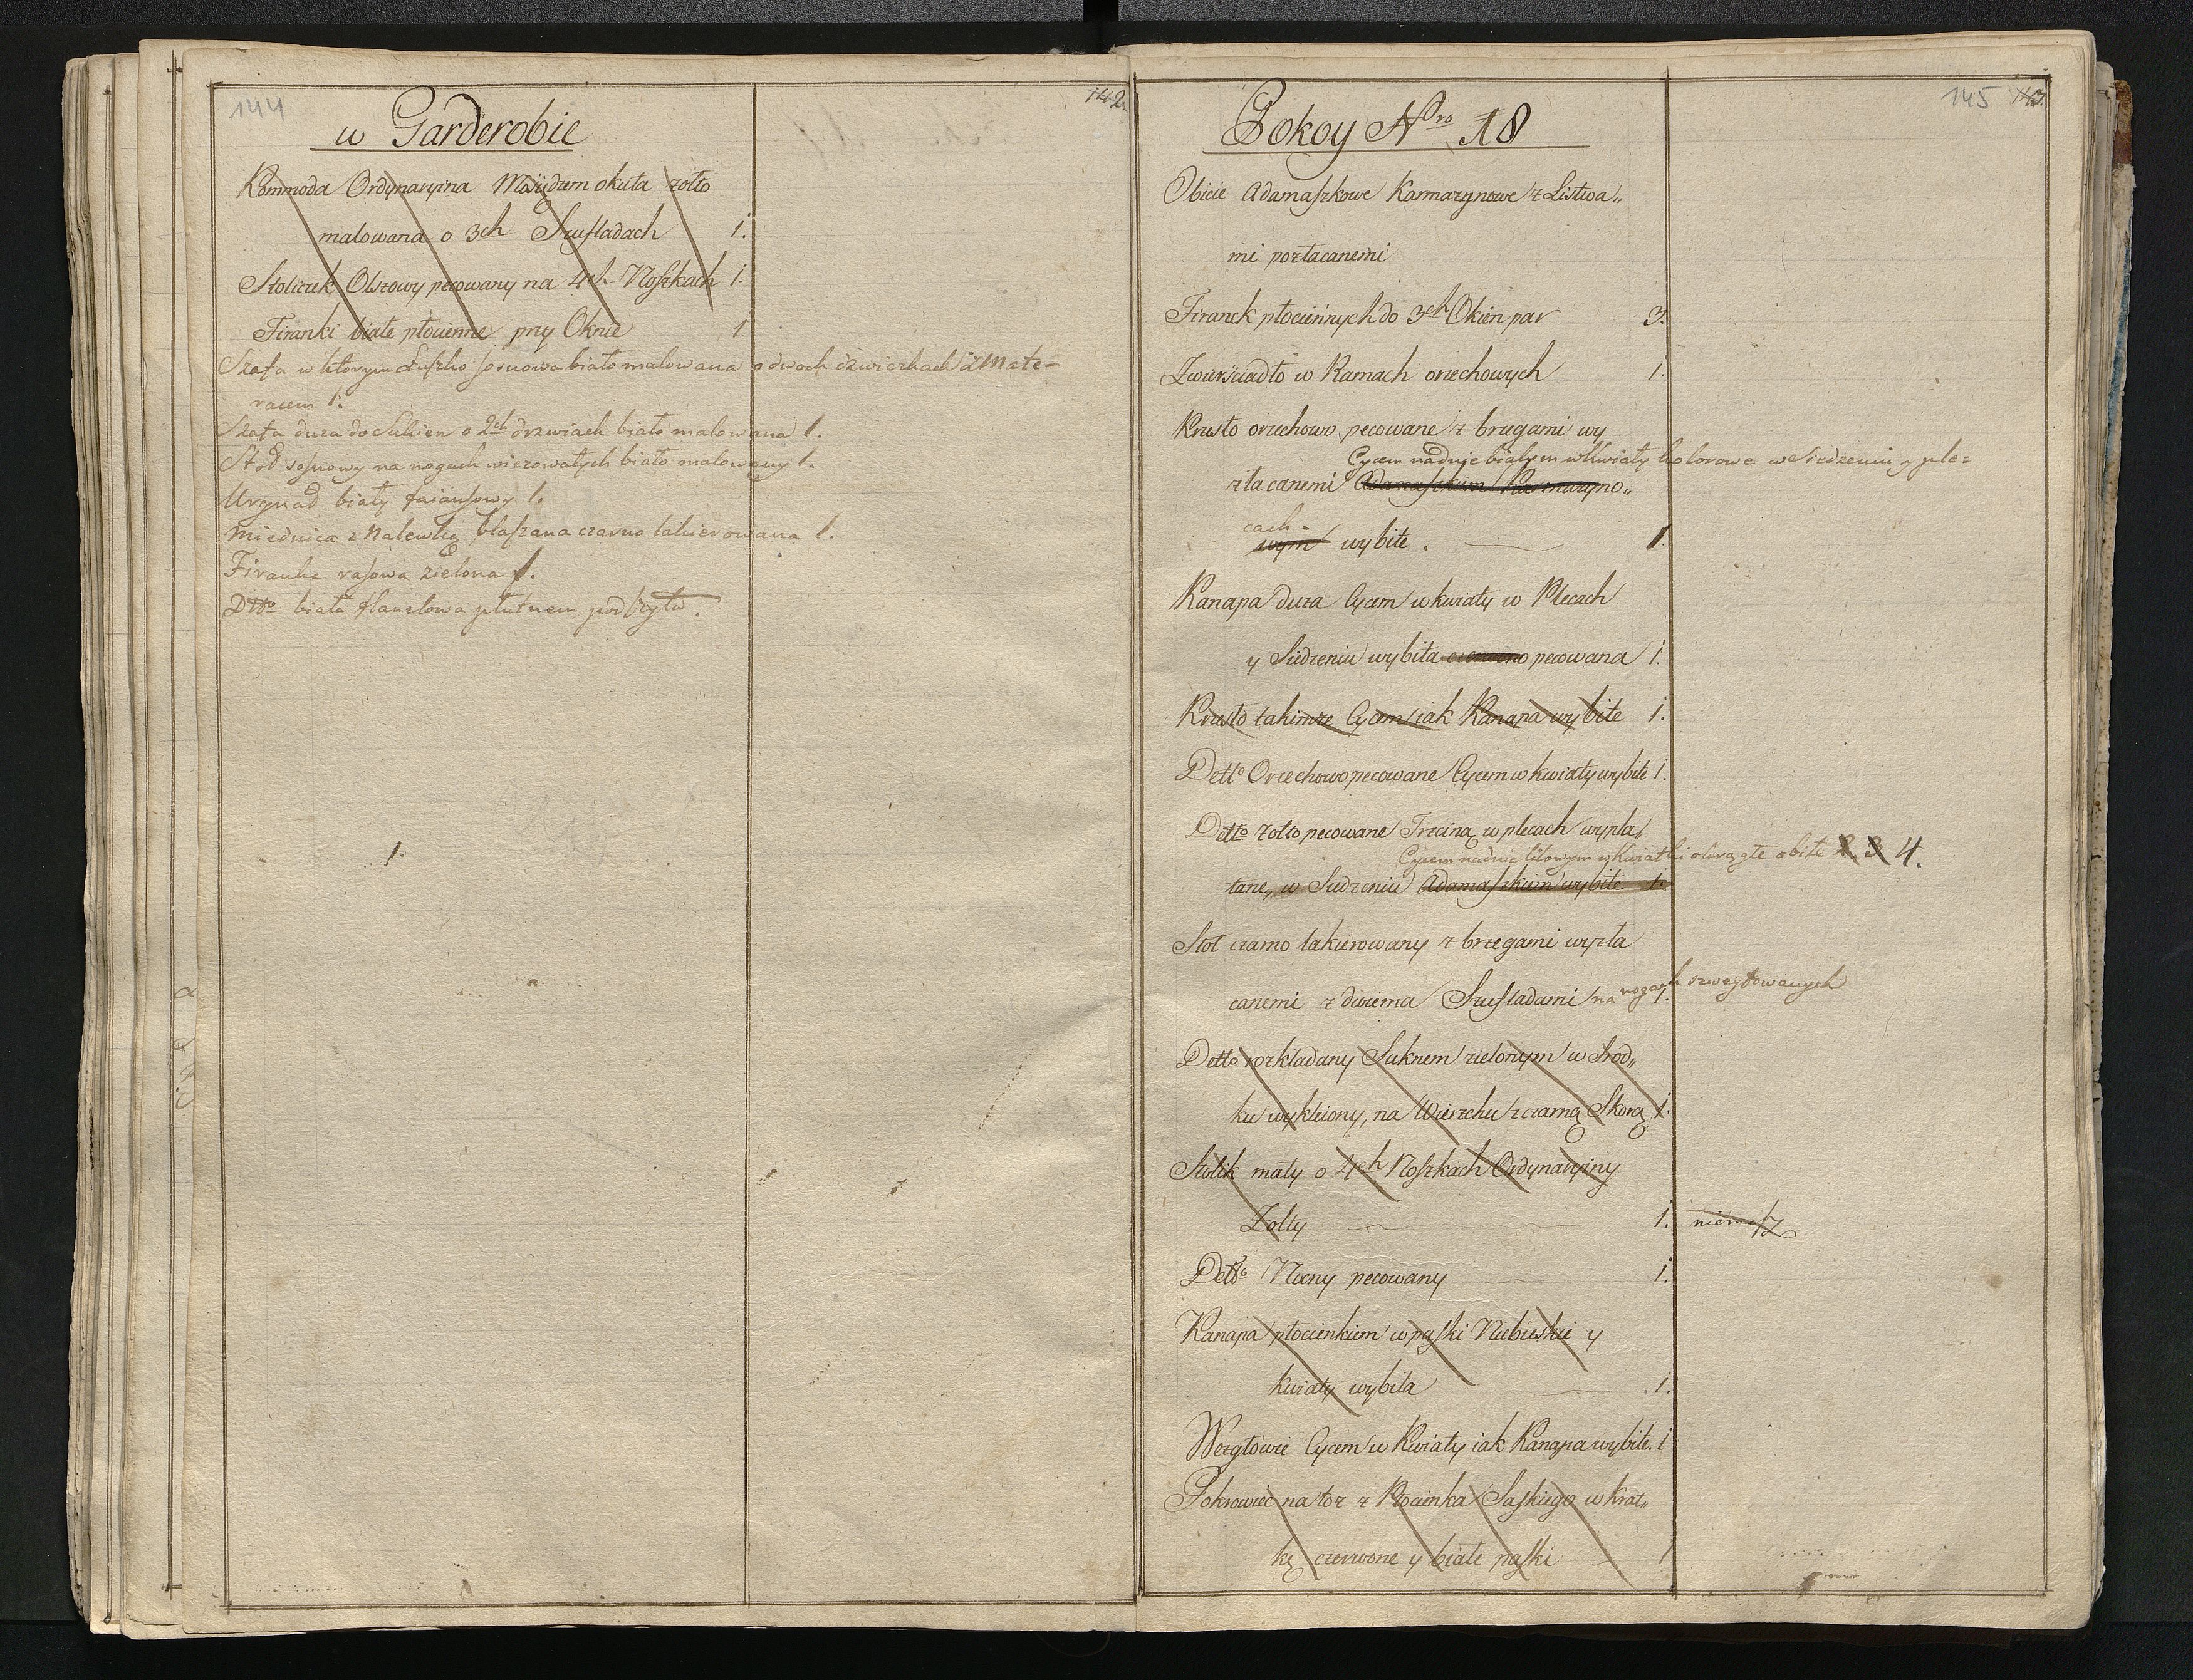 144
142.
w Garderobie
Kommoda Ordynaryina Mosiądzem okuta żołto
malowana o 3ch Szufladach 1.
Stoliczek Olszowy pecowany na 4ch Noszkach 1.
Firanki białe płocienne przy Oknie 1.
Szafa w ktorym Łuszko sosnowa biało malowana o dwoch dzwiczkach z Mate-
racem 1.
Szafa duza do Sukien o 2ch drzwiach biało malowana 1.
Stoł sosnowy na nogach wierowatych biało malowany 1.
Urynał biały faiansowy 1.
Miednica z Nalewką blaszana czarno lakierowana 1.
Firanka rasowa zielona 1.
Dtto biała flanelowa płutnem podszyta.
1.
145
143.
Pokoy Nro 18
Obicie Adamaszkowe Karmazynowe z Listwa„
mi pozłacanemi
Firanek płociennych do 3ch Okien par 3.
Zwierściadło w Ramach orzechowych 1.
Krzesło orzechowo pecowane z brzegami wy
Cycem na dnie białym w kwiaty kolorowe w Siedzeniu y ple=
złacanemi Adamaszkiem Karmazyno„
cach.
wym wybite. 1.
Kanapa duza Cycem w kwiaty w Plecach
y Siedzeniu wybita pecowana 1.
Krzesło takimze Cycem iak Kanapa wybite 1.
Detto Orzechowo pecowane Cycem w kwiaty wybite 1.
Detto żołto pecowane Trzciną w plecach wypla„
Cycem na dnie lilowym w kwiatki okrągłe obite 2. 3 4.
tane, w Siedzeniu Adamaszkiem wybite 1.
Stoł czarno lakierowany z brzegami wyzła
canemi z dwiema Szufladami na nogach szweyfowanych 1.
Detto rozkładany Suknem zielonym w Srod„
ku wyklejony, na Wierzchu z czarną Skorą 1.
Stolik mały o 4ch Noszkach Ordynaryiny
Zołty 1.
Detto Nocny pecowany 1.
Kanapa płocienkiem w paski Niebieskie y
kwiaty wybita 1.
Wezgłowie Cycem w Kwiaty iak Kanapa wybite. 1
Pokrowiec na toz z Płocienka Saskiego w krat„
kę czerwone y białe paski 1